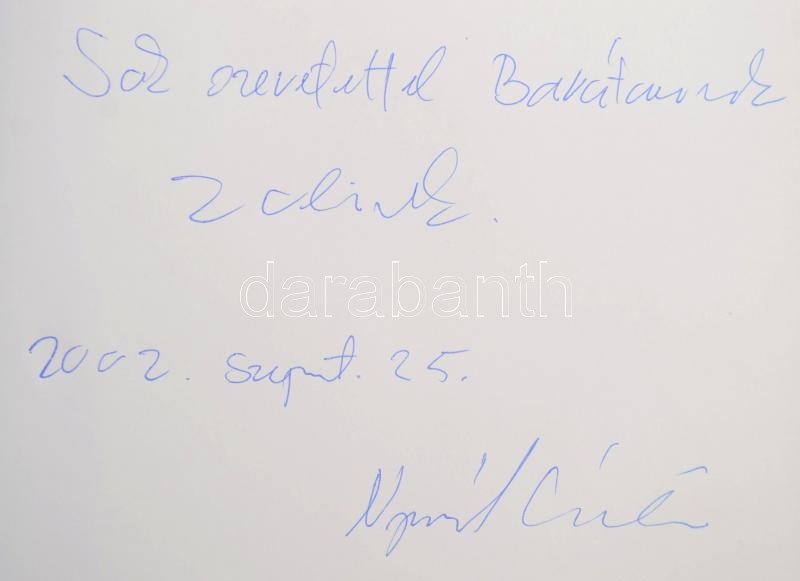 Sok szeretettel Barátomnak
Zolinak.
darabanth
2002. szept. 25.